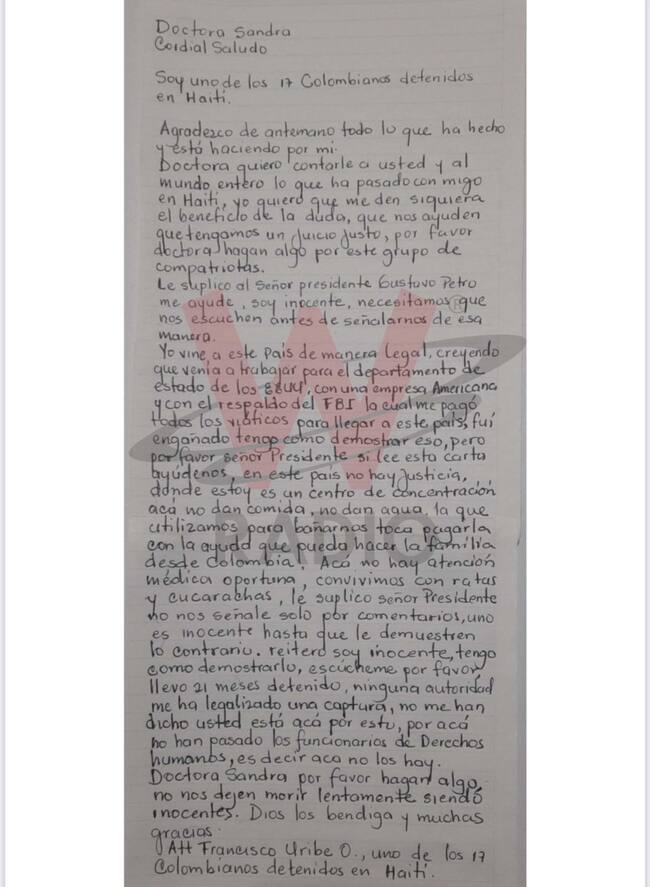 Doctora Sandra
Cordial Saludo
Soy uno de los 17 Colombianos detenidos
en Haití.
Agradezco de antemano todo lo que ha hecho
y está haciendo por mi.
Doctora quiero contarle a usted y al
mundo entero lo que ha pasado con migo
en Haití, yo quiero que me den siquiera
el beneficio de la duda, que nos ayuden
que tengamos un juicio justo, por favor
doctora hagan algo por este grupo de
compatriotas.
Le suplico al Señor presidente Gustavo Petro
me ayude, soy inocente, necesitamos que
nos escuchen antes de señalarnos de esa
manera.
Yo vine a este País de manera legal, creyendo
que venía a trabajar para el departamento de
estado de los EEUU, con una empresa Americana
y con el respaldo del FBI la cual me pagó
todos los viáticos para llegar a este país, fuí
engañado tengo como demostrar eso, pero
por favor señor Presidente si lee esta carta
ayúdenos, en este país no hay justicia,
donde estoy es un centro de concentración
acá no dan comida, no dan agua, la que
utilizamos para bañarnos toca pagarla
con la ayuda que pueda hacer la familia
desde Colombia! Acá no hay atención
médica oportuna, convivimos con ratas
y cucarachas, le suplico señor Presidente
no nos señale solo por comentarios, uno
es inocente hasta que le demuestren
lo contrario. reitero soy inocente, tengo
como demostrarlo, escúcheme por favor,
llevo 21 meses detenido, ninguna autoridad
me ha legalizado una captura, no me han
dicho usted está acá por esto, por acá
no han pasado los funcionarios de Derechos
humanos, es decir aca no los hay.
Doctora Sandra por favor hagan algo,
no nos dejen morir lentamente siendo
inocentes. Dios los bendiga y muchas
gracias.
Att Francisco Uribe O., uno de los 17
Colombianos detenidos en Haití.
W
RADIO